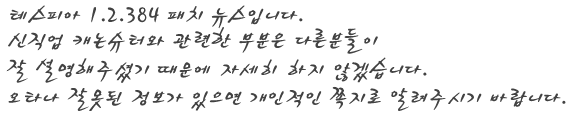 테스피아 1.2.384 패치 뉴스입니다.
신직업 캐논슈터와 관련한 부분은 다른분들이
잘 설명해주셨기 때문에 자세히 하지 않겠습니다.
오타나 잘못된 정보가 있으면 개인적인 쪽지로 알려주시기 바랍니다.